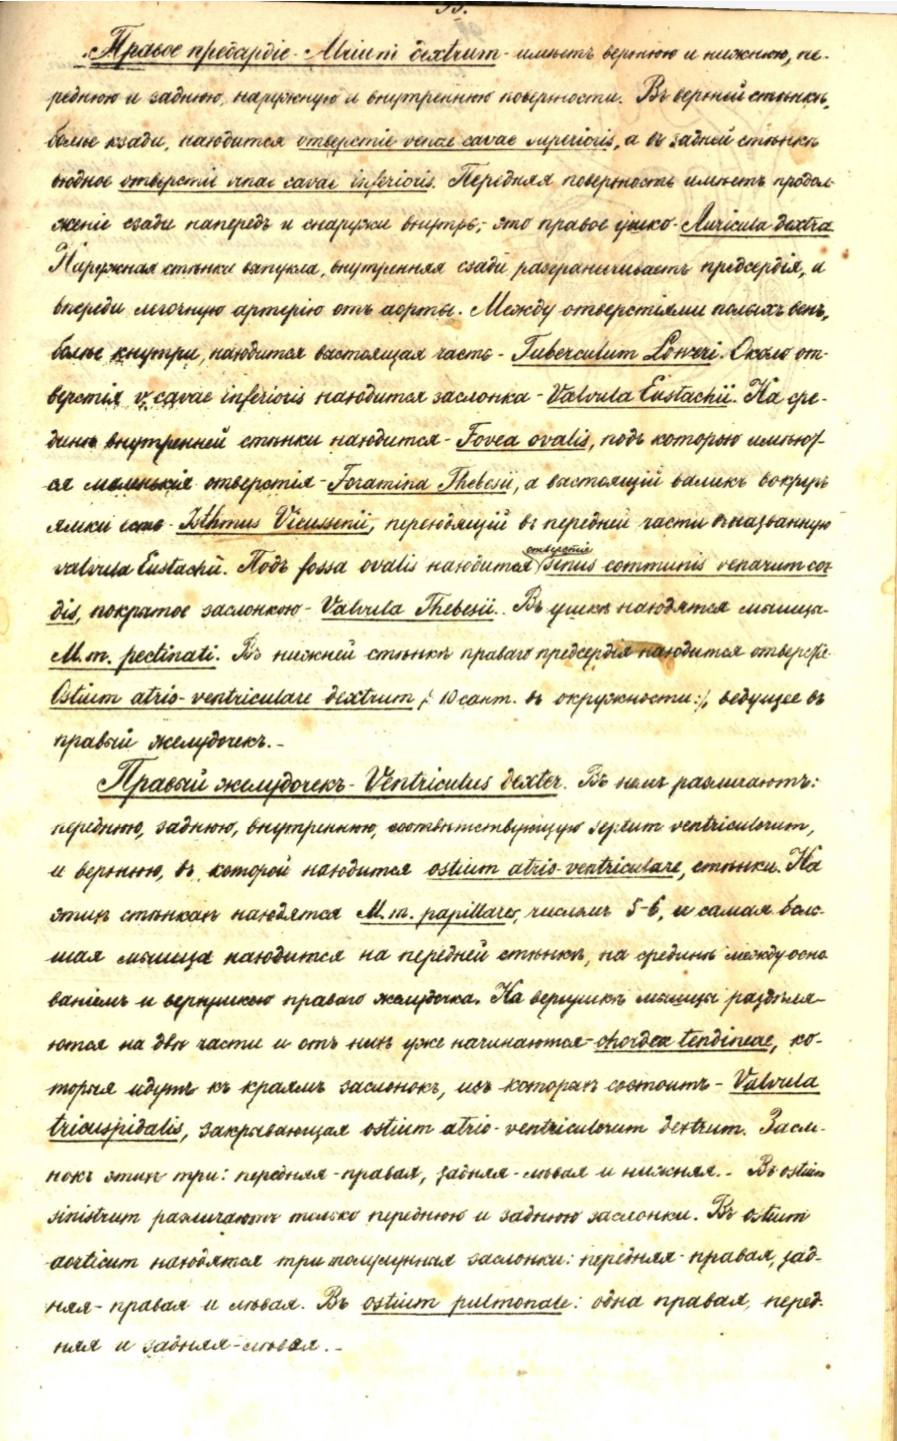 Правое предсердіе - Atrium dextrum - имѣетъ верхнюю и нижнюю, пе-
реднюю и заднюю, наружную и внутреннюю поверхности. Въ верхней стѣнкѣ,
болѣе кзади, находится отверстіе venae cavae superioris, а въ задней стѣнкѣ
входное отверстіе venae cavae inferioris. Передняя поверхность имѣетъ продол-
женіе сзади напередъ и снаружи внутрь,- это правое ушко - Auricula dextra
Наружная стѣнка выпукла, внутренняя сзади разграничиваетъ предсердія, и
впереди легочную артерію отъ аорты. Между отверстіями полыхъ венъ,
болѣе кнутри, находится выстоящая часть - Tuberculum Loweri. Около от-
верстія v. cavae inferioris находится заслонка - Valvula Eustachii. На сре-
динѣ внутренней стѣнки находится - Fovea ovalis, подъ которою имѣют-
ся маленькія отверстія - Foramina Thebesii, а выстоящій валикъ вокругъ
ямки есть - Isthmus Vieussenii, переходящій въ передней части въ названную
valvula Eustachii. Подъ fossa ovalis находится отверстіе sinus communis venarum cor-
dis, покрытое заслонкою - Valvula Thebesii. Въ ушкѣ находятся мышцы-
M. m. pectinati. Въ нижней стѣнкѣ праваго предсердія находится отверстіе-
Ostium atrio-ventriculare dextrum /: 10 сант. въ окружности :/, ведущее въ
правый желудочекъ.-
Правый желудочекъ - Ventriculus dexter. Въ немъ различаютъ:
переднюю, заднюю, внутреннюю, соотвѣтствующую septum ventriculorum,
и верхнюю, въ которой находится ostium atrio-ventriculare, стѣнки. На
этихъ стѣнкахъ находятся M. m. papillares, числомъ 5-6, и самая боль-
шая мышца находится на передней стѣнкѣ, на срединѣ между осно
ваніемъ и верхушкою праваго желудочка. На верхушкѣ мышцы раздѣля-
ются на двѣ части и отъ нихъ уже начинаются - chordea tendineae, ко-
торыя идутъ къ краямъ заслонокъ, изъ которыхъ состоитъ - Valvula
tricuspidalis, закрывающая ostium atrio-ventriculorum dextrum. Засло-
нокъ этихъ три: передняя-правая, задняя-лѣвая и нижняя.- Въ ostium
sinistrum различаютъ только переднюю и заднюю заслонки. Въ ostium
aorticum находятся три полулунныя заслонки: передняя-правая, зад-
няя-правая и лѣвая. Въ ostium pulmonale: одна правая, перед-
няя и задняя-лѣвая.-